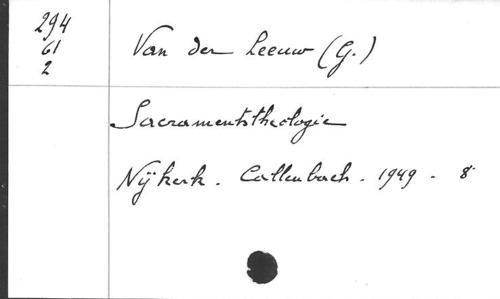 294
61
2
Van der Leeuw (G.)
Sacramentstheologie
Nijkerk. Callenbach. 1949. 8°